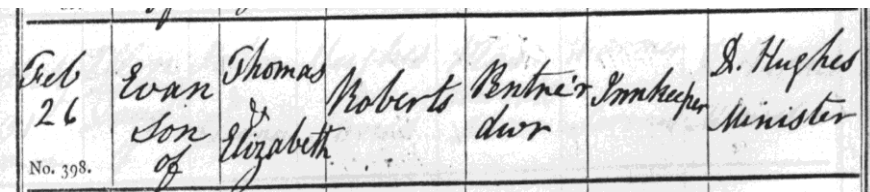 Feb
26
No. 398.
Evan
Son
of
Thomas
&
Elizabeth
Roberts
Pentre'r
dwr
Innkeeper
D. Hughes
Minister